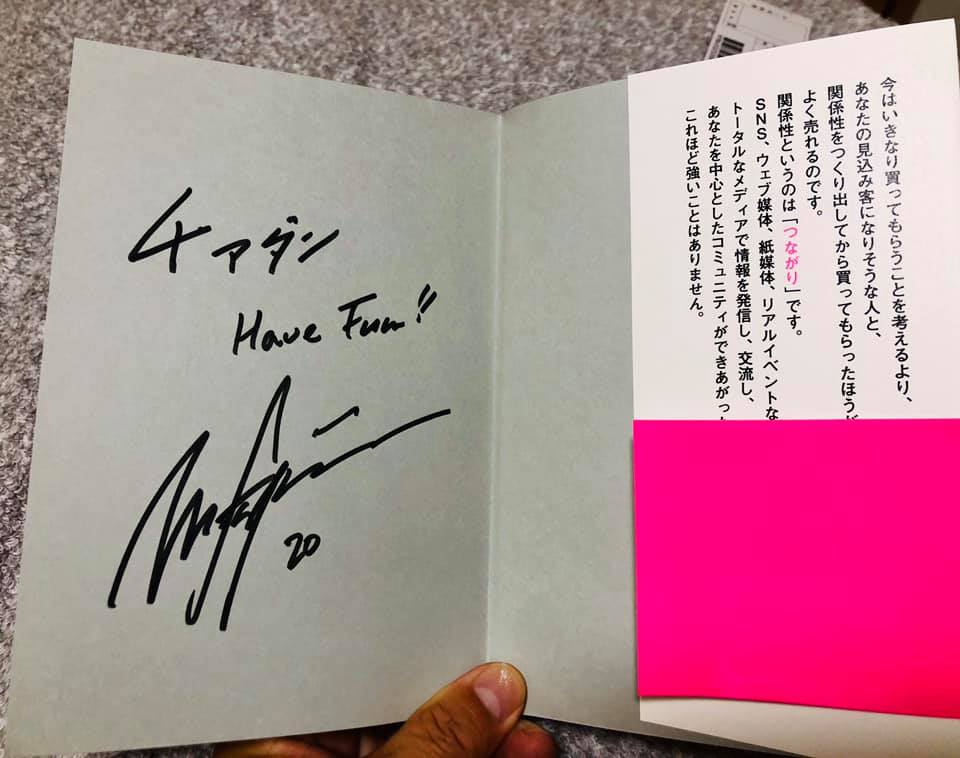 チアダン
Have Fun!!
20
今はいきなり買ってもらうことを考えるより、
あなたの見込み客になりそうな人と、
関係性をつくり出してから買ってもらったほう
よく売れるのです。
関係性というのは「つながり」です。
SNS、ウェブ媒体、紙媒体、リアルイベント
トータルなメディアで情報を発信し、交流し、
あなたを中心としたコミュニティができあがっ
これほど強いことはありません。